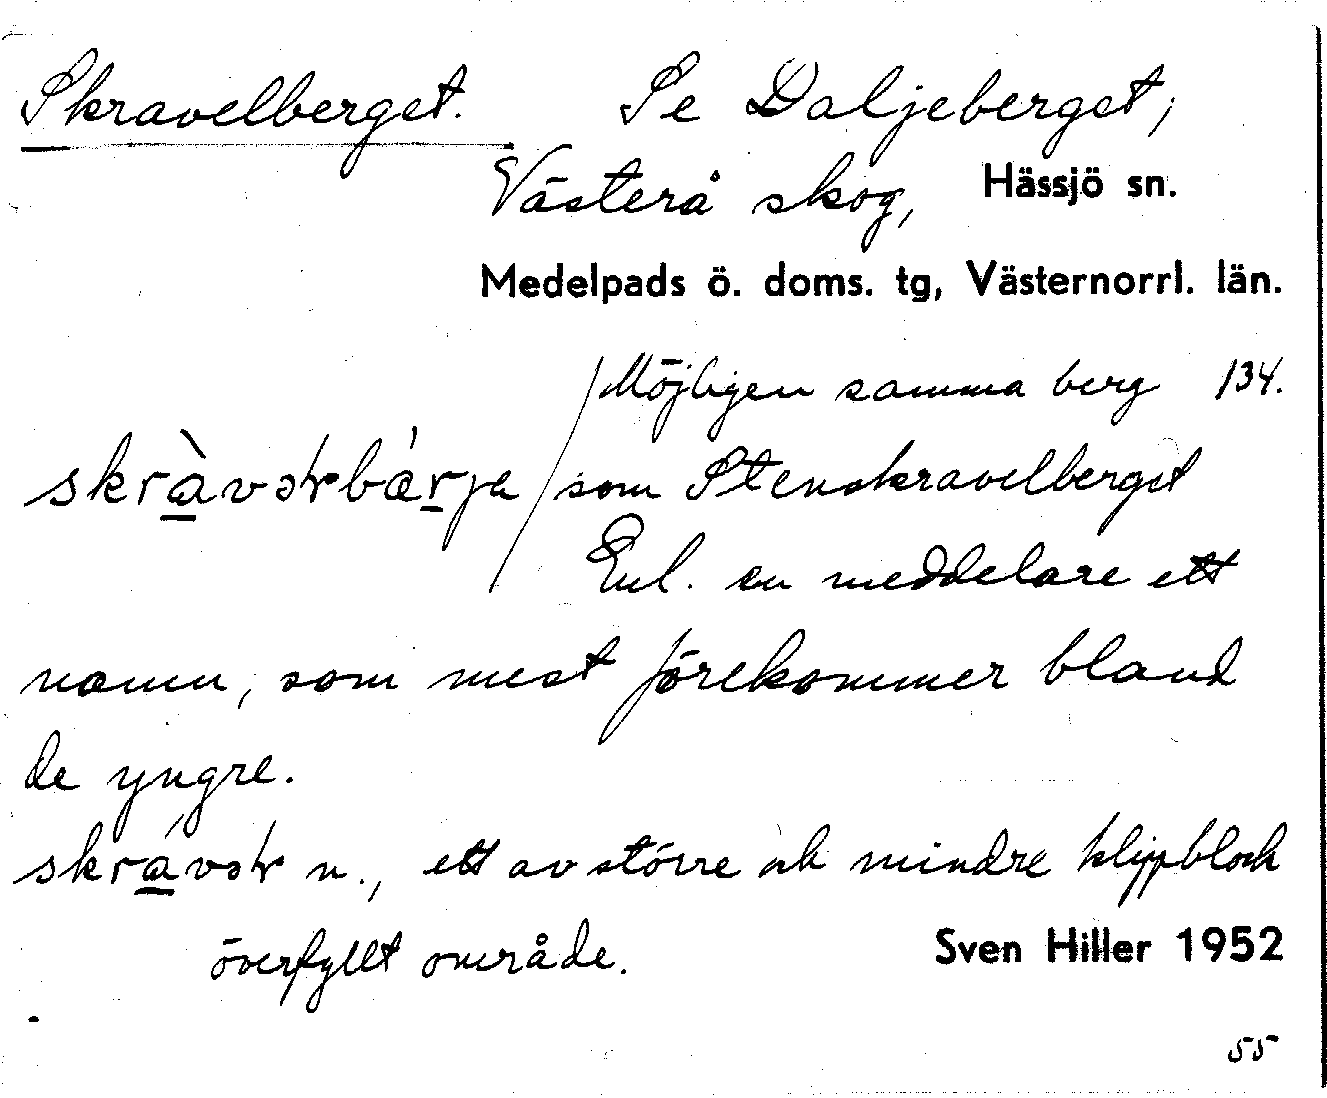 Skravelberget. Se Daljeberget;
Västerå skog, Hässjö sn.
Medelpads ö. doms. tg, Västernorrl. län.
Möjligen samma berg 134.
som Stenskravelberget
Enl. en meddelare ett
namn, som mest förekommer bland
de yngre.
n., ett av större och mindre klippblock
överfyllt område. Sven Hiller 1952
55